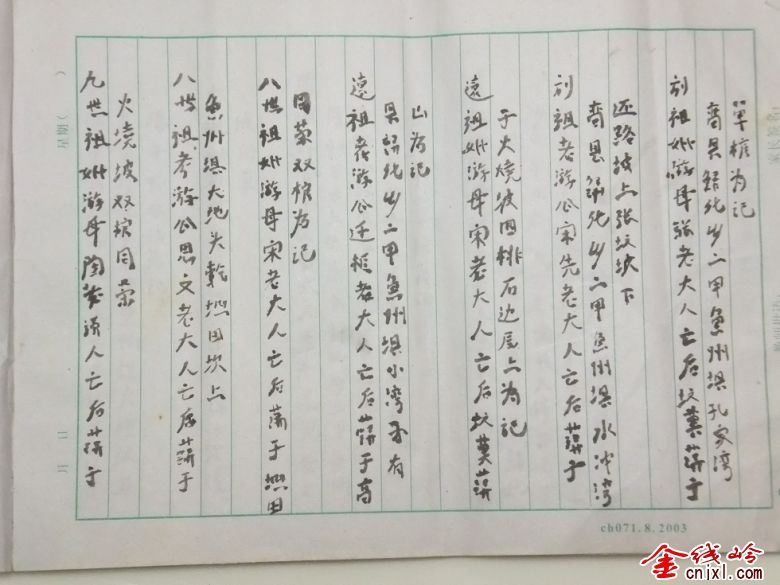 单棺为记
商县归化乡二甲鱼州埧孔家湾
刘祖妣游母张老大人亡后坟墓葬于
还路坡上张坟坡下
商县归化乡二甲鱼州埧水冲湾
刘祖考游公宋先老大人亡后葬于
于火烧坡田排石边尾上为记
远祖妣游母宋老大人亡后坟墓葬
山为记
县归化乡二甲鱼州埧小湾子有
远祖考游公廷棺老大人亡后葬于高
同茔双棺为记
八世祖妣游母宋老大人亡后葬于坳田
鱼州埧大地头乾坳田坎上
八世祖考游公思文老大人亡后葬于
火烧坡双棺同茔
九世祖妣游母陶孺人亡后葬于
星期( )
月 日
ch071.8.2003
金线岭
cnjxl.com